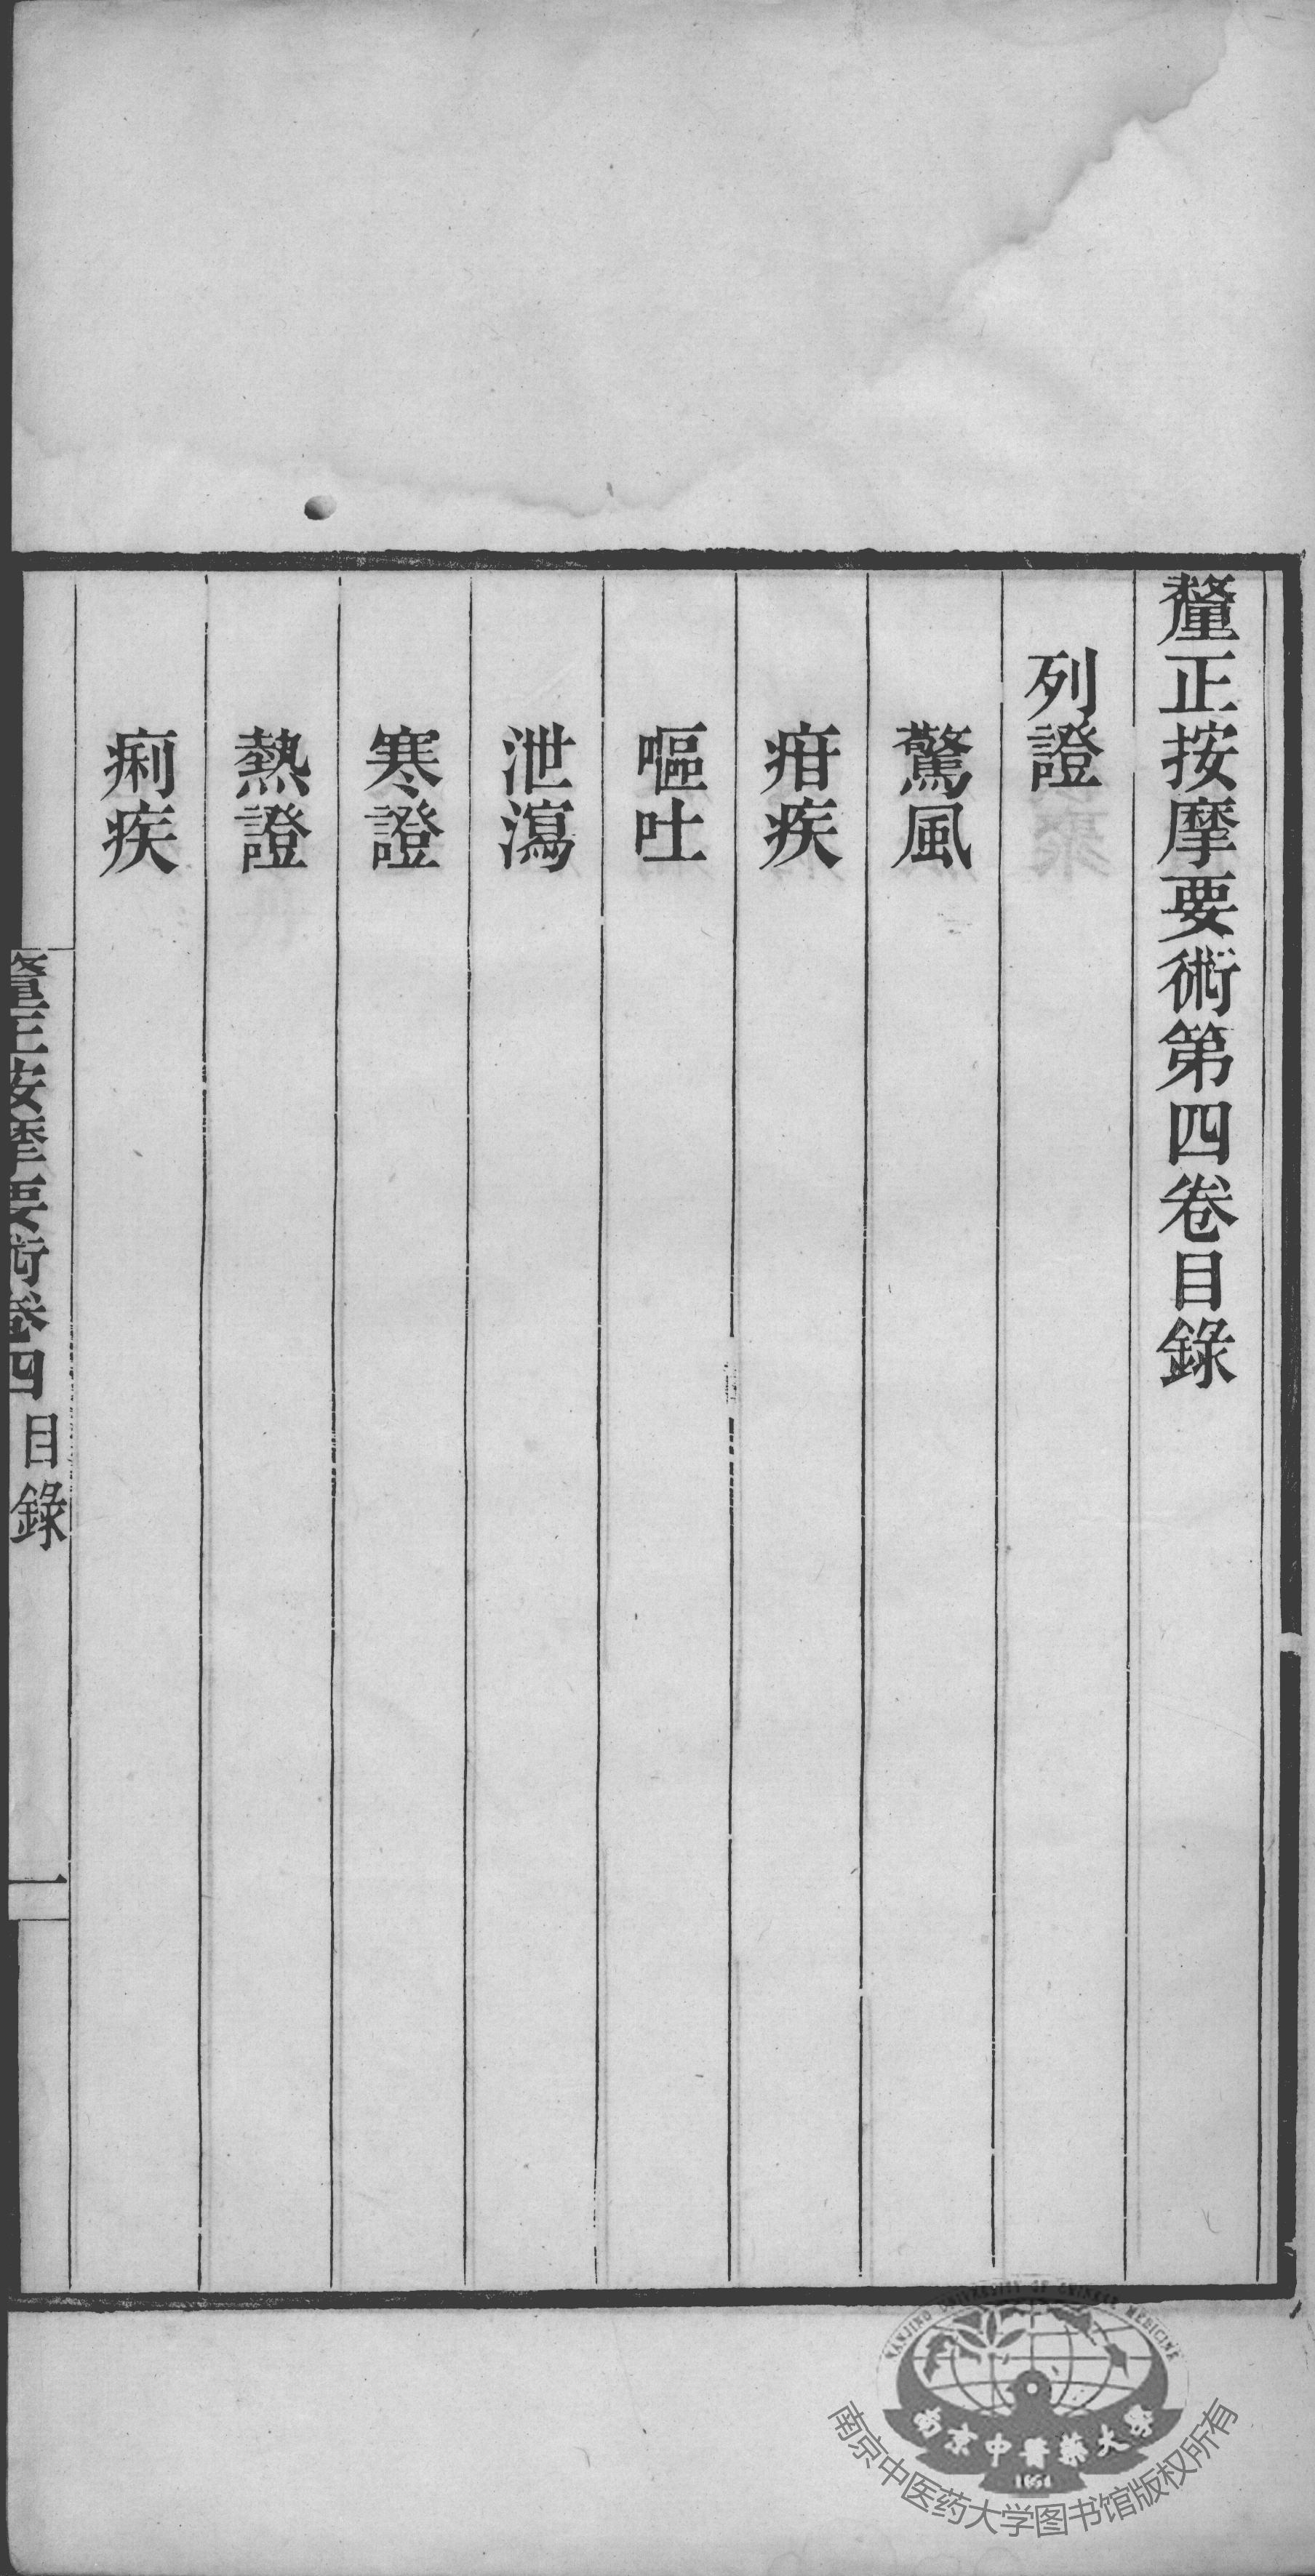 釐正按摩要術第四卷目錄
列證
驚風
疳疾
嘔吐
泄瀉
寒證
熱證
痢疾
釐正按摩要術卷四 目錄 一
NANJING UNIVERSITY OF CHINESE MEDICINE
南京中醫藥大學
1954
南京中医药大学图书馆版权所有